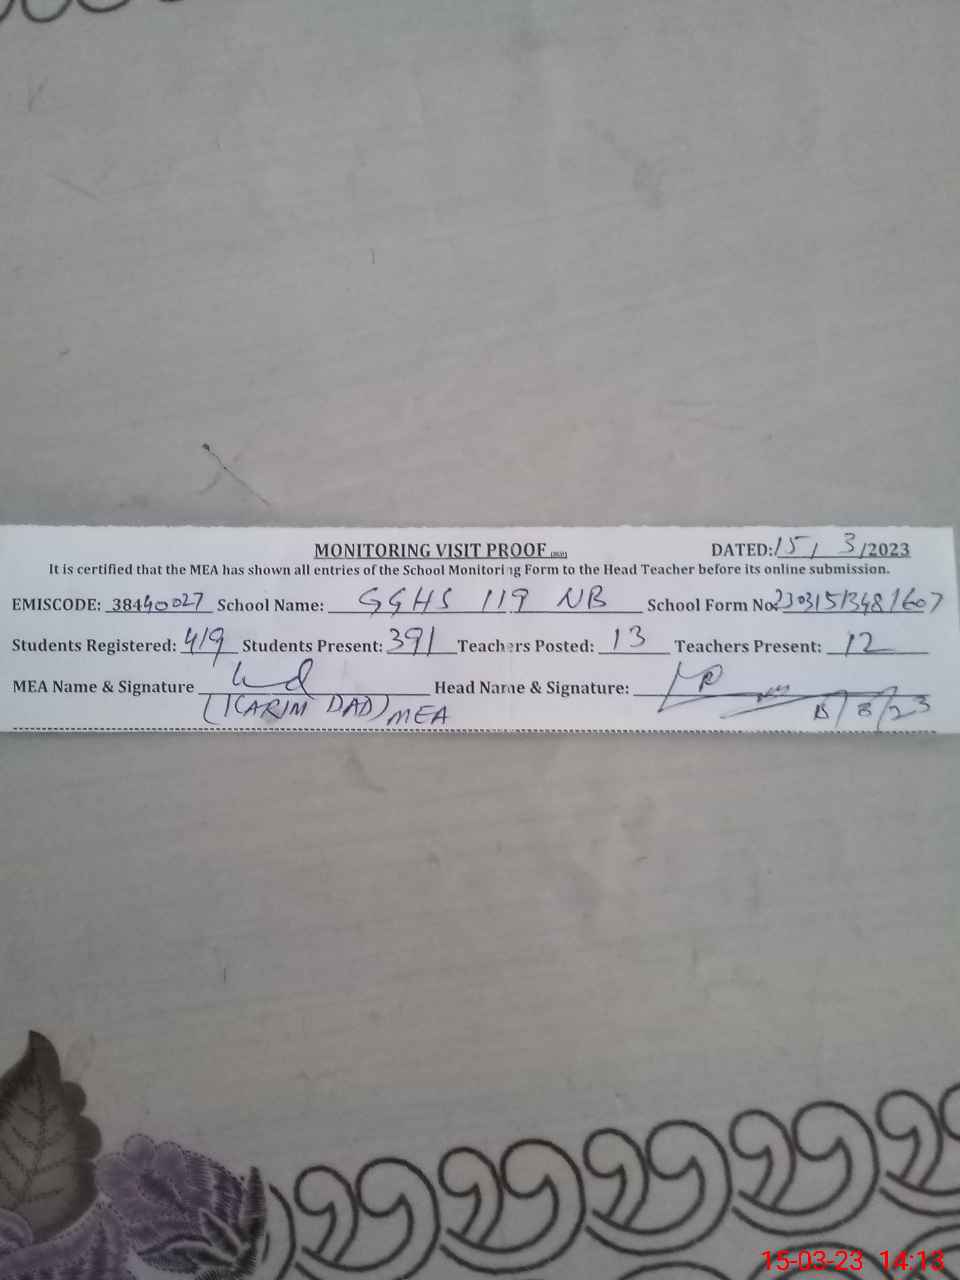 MONITORING VISIT PROOF
DATED: 15/3/2023
It is certified that the MEA has shown all entries of the School Monitoring Form to the Head Teacher before its online submission.
EMISCODE: 38440027 School Name: GGHS 119 NB School Form No: 23031513481607
Students Registered: 419 Students Present: 391 Teachers Posted: 13 Teachers Present: 12
MEA Name & Signature Head Name & Signature:
(KARIM DAD) MEA
15-03-23 14:13